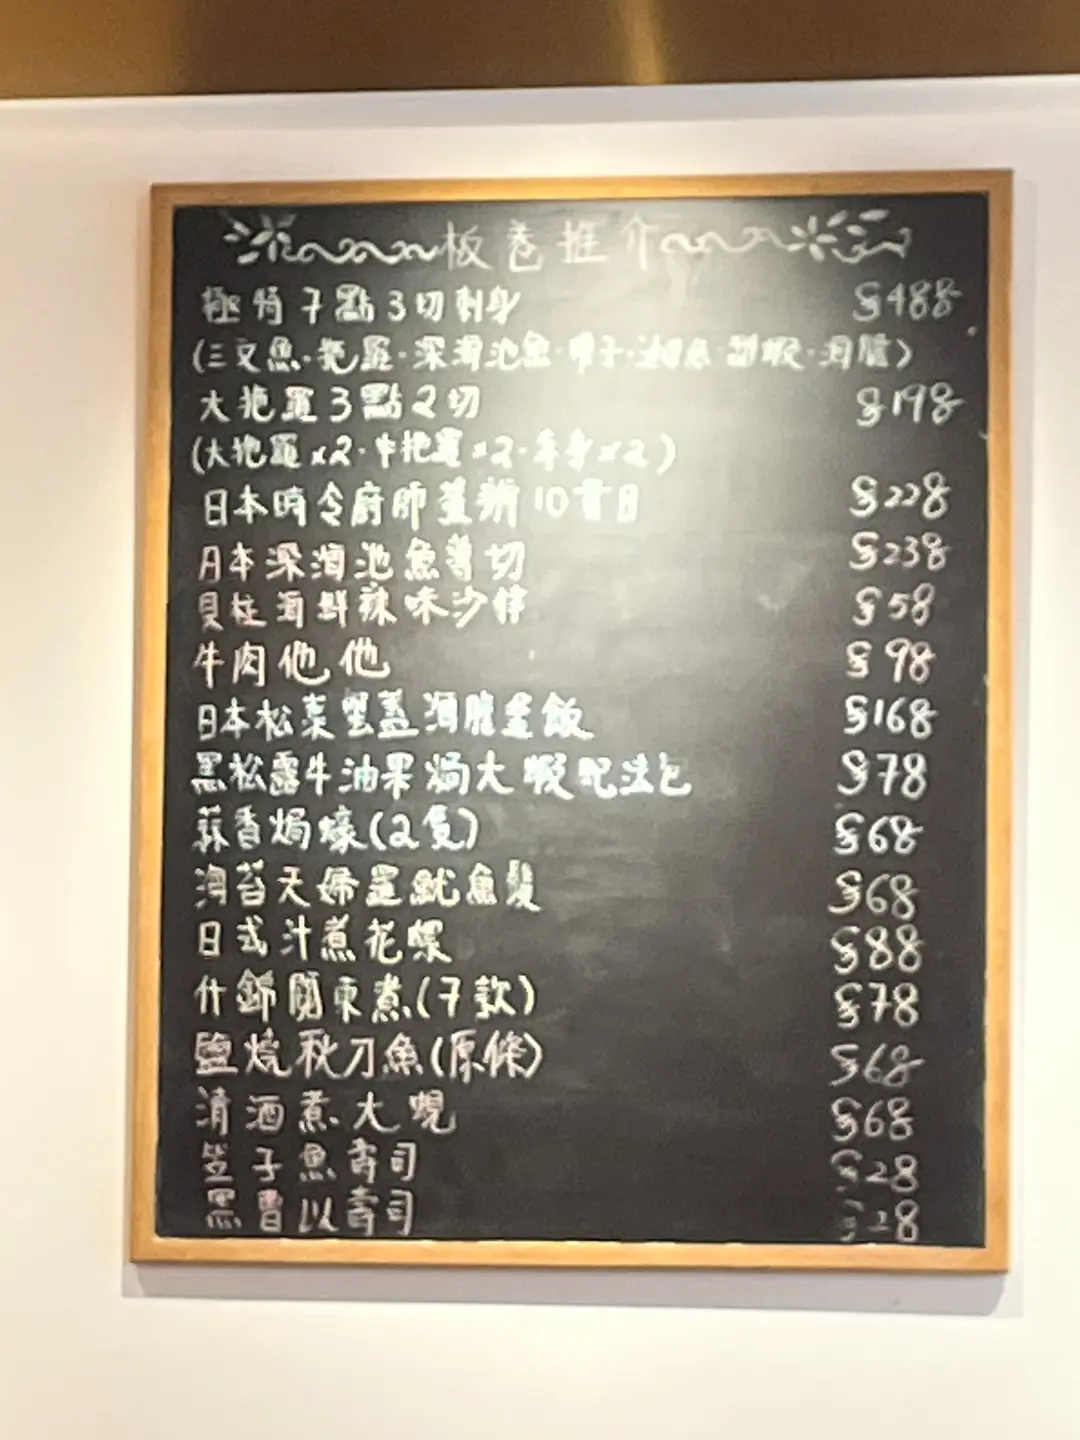 板卷推介
極特7點3切刺身 $488
(三文魚·拖羅·深海池魚·帶子·油甘魚·甜蝦·海膽)
大拖羅3點2切 $198
(大拖羅x2·中拖羅x2·赤身x2)
日本時令廚師盛辦10貫 $228
日本深海池魚薄切 $238
貝柱海鮮辣味沙律 $58
牛肉他他 $98
日本松葉蟹蓋海膽釜飯 $168
黑松露牛油果焗大蝦配法包 $78
蒜香焗蠔(2隻) $68
海苔天婦羅魷魚鬚 $68
日式汁煮花螺 $88
什錦關東煮(7款) $78
鹽燒秋刀魚(原條) $68
清酒煮大蜆 $68
笠子魚壽司 $28
黑曹以壽司 $28